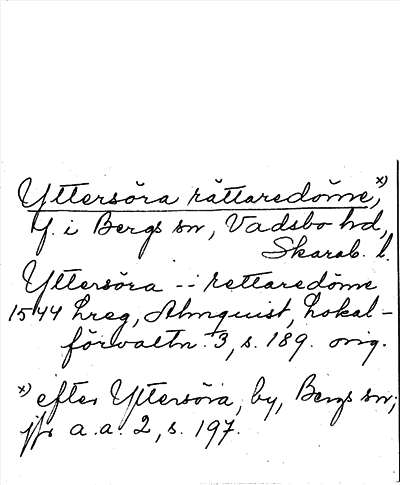 Yttersöra rättaredöme, x)
f. i Bergs sn, Vadsbo hd,
Skarab. l.
Yttersöra -- rettaredöme
1544 Lreg, Almquist, Lokal-
förvaltn. 3, s. 189. orig.
x) efter Yttersöra, by, Bergs sn;
jfr a.a. 2, s. 197.